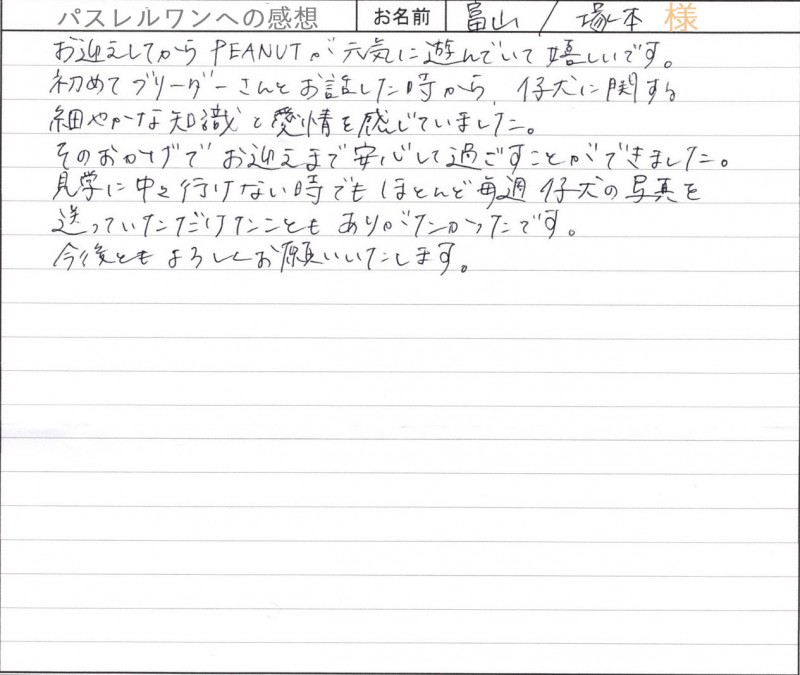 パスレルワンへの感想 お名前 富山 / 塚本 様
お迎えしてから PEANUTが元気に遊んでいて嬉しいです。
初めてブリーダーさんとお話した時から、仔犬に関する
細やかな知識と愛情を感じていました。
そのおかげで お迎えまで安心して過ごすことができました。
見学に中々行けない時でも ほとんど毎週 仔犬の写真を
送っていただけたことも ありがたかったです。
今後とも よろしくお願いいたします。